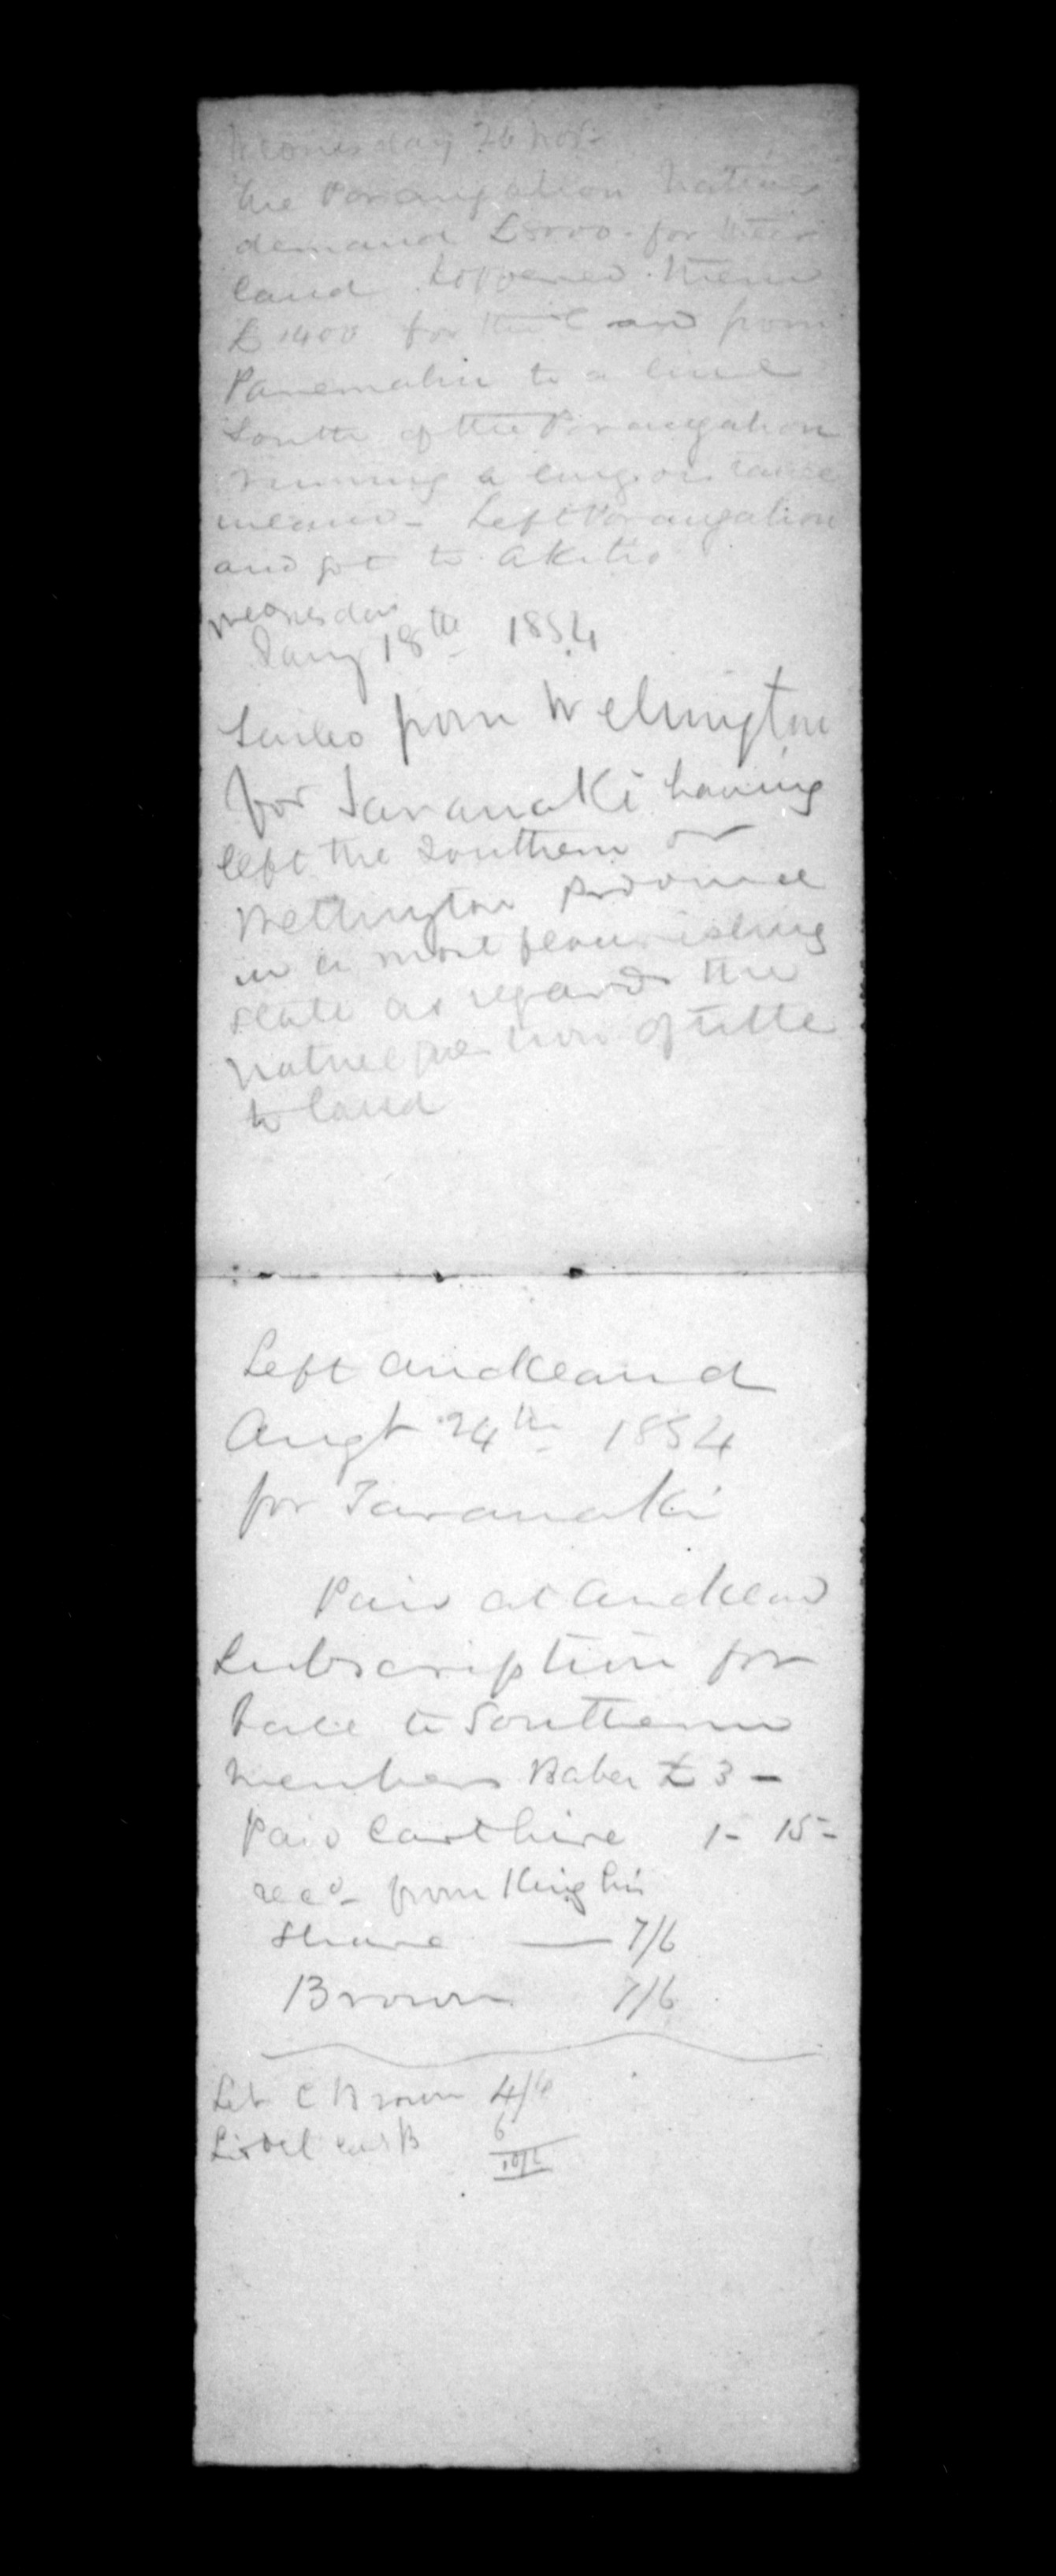 Wednesday 26 Nov-
The Porangahau Natives
demand £5000. for their
land. I offered them
£1400 for the land from
Parimahu to a line
South of the Porangahau
running a long distance
inland - Left Porangahau
and got to Akitio
Wednesday
Jany 18th 1854
Sailed from Wellington
for Taranaki having
left the Southern or
Wellington Province
in a most flourishing
state as regards the
native question of title
to land
Left Auckland
Augt 24th 1854
for Taranaki
Paid at Auckland
Subscription for
Ball to Southern
members Baber £3 -
Paid Cart hire 1- 15-
recd- from King his
Share — 7/6
Brown 7/6
C Brown 4/6
6
10/6